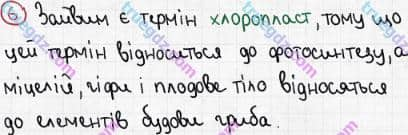 6 Зайвим є термін хлоропласт, тому що
цей термін відноситься до фотосинтезу, а
міцелій, гіфи і плодове тіло відносяться
до елементів будови гриба.